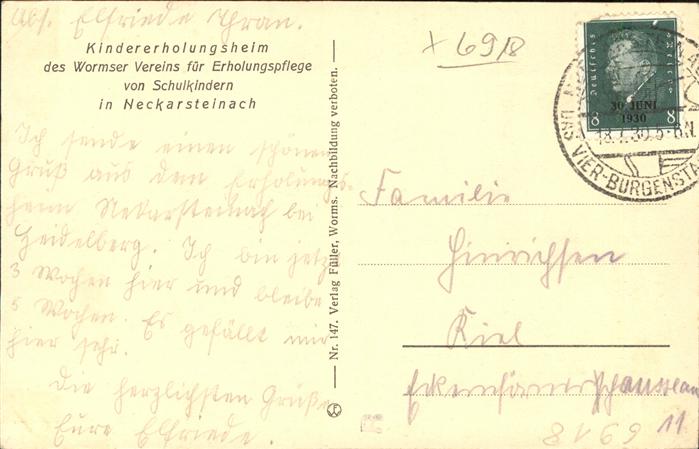 Abs. Elfriede Thran.
Kindererholungsheim
des Wormser Vereins für Erholungspflege
von Schulkindern
in Neckarsteinach
Ich sende einen schönen
Gruß aus dem Erholungs-
heim Neckarsteinach bei
Heidelberg. Ich bin jetzt
3 Wochen hier und bleibe
5 Wochen. Es gefällt mir
hier sehr.
Die herzlichsten Grüße
Eure Elfriede.
Nr. 147. Verlag Füller, Worms. Nachbildung verboten.
x 69/8
Deutsches Reich
30. JUNI
1930
8 8
18.7.30.5-6N.
DAS VIER-BURGENSTA
Familie
Hinrichsen
Kiel
Eckernförderchaussee
11
8169